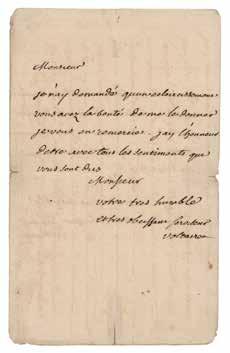 Monsieur
je n'ay demandé qu'un eclaircissement
vous avez la bonté de me le donner
je vous en remercie. j'ay l'honneur
detre avec tous les sentiments que
vous sont dus
Monsieur
votre tres humble
et tres obeissant serviteur
voltaire